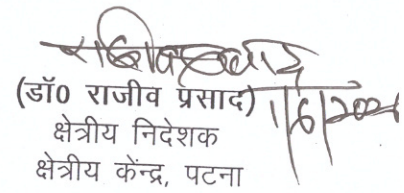 (डॉ0 राजीव प्रसाद)
क्षेत्रीय निदेशक
क्षेत्रीय केंद्र, पटना